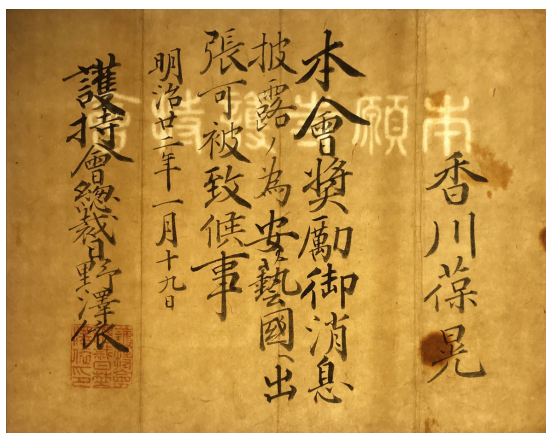 香川葆晃
本會奬勵御消息
披露ノ為安藝國ヘ出
張可被致候事
明治廿二年一月十九日
護持會總裁日野澤依
本願寺護持會